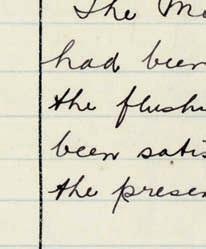 The M
had been
the flush
been satis
the presen